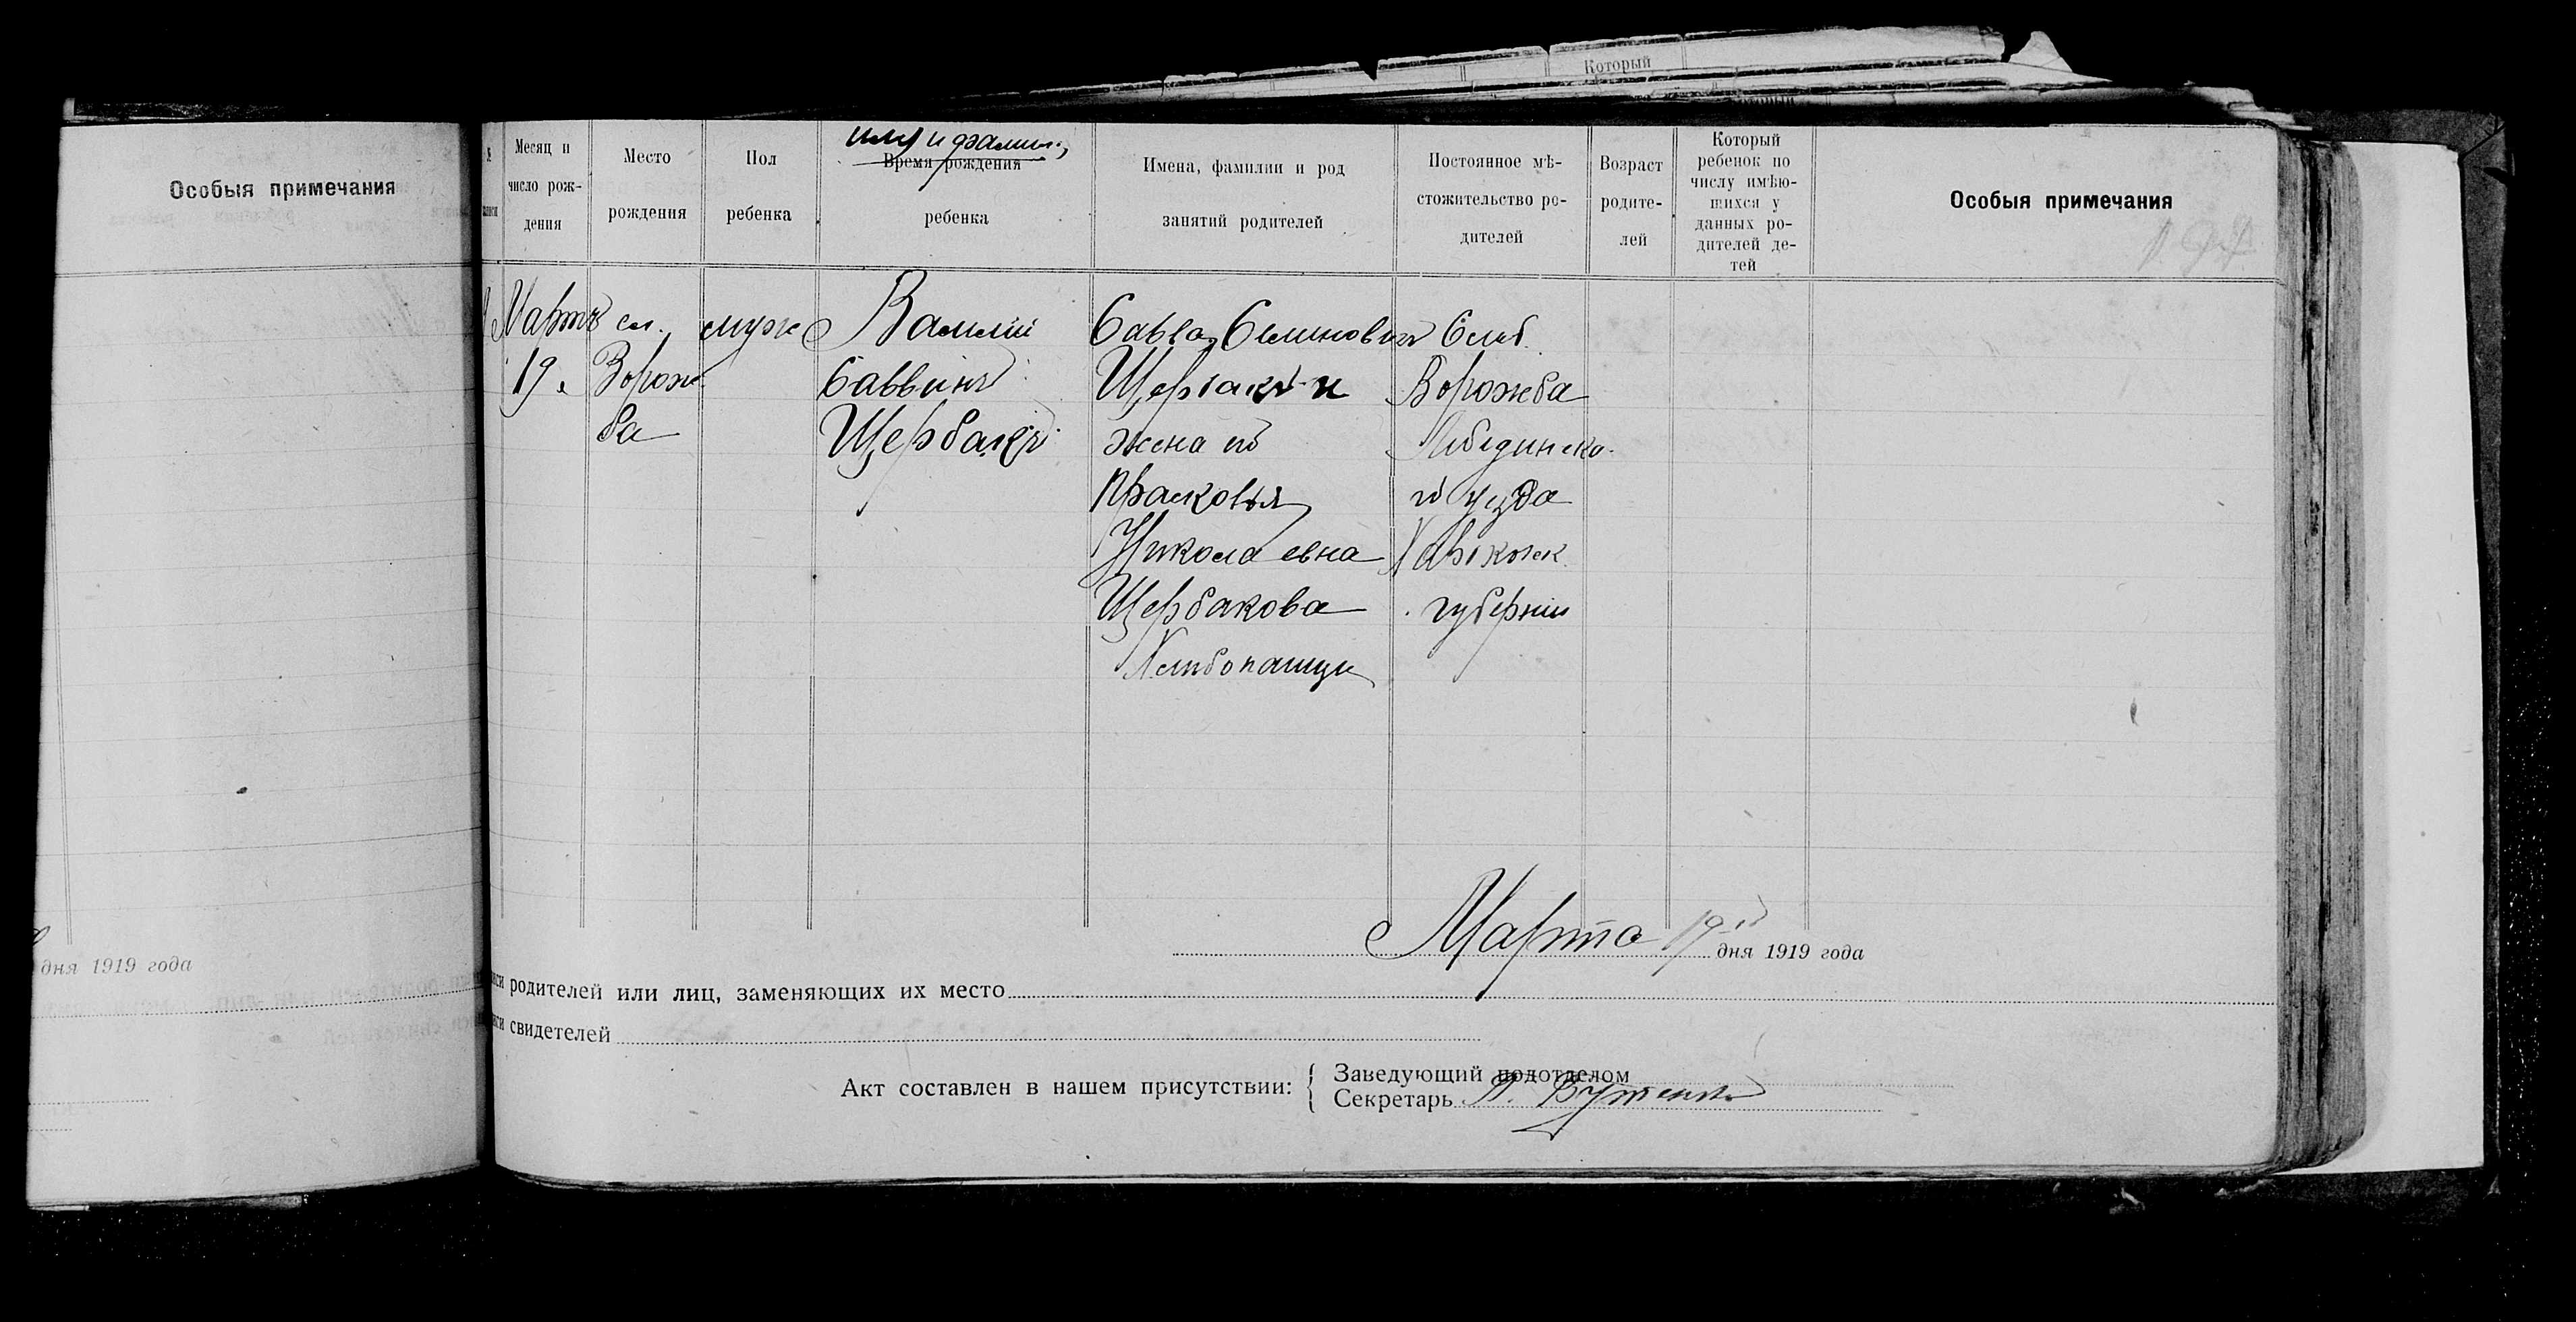 Который
Особыя примечания
дня 1919 года
Месяц и
число рож-
дения
Место
рождения
Пол
ребенка
имя и фамил.
Время рождения
ребенка
Имена, фамилии и род
занятий родителей
Постоянное мѣ-
стожительство ро-
дителей
Возраст
родите-
лей
Который
ребенок по
числу имѣю-
щихся у
данных ро-
дителей де-
тей
Особыя примечания
Мартъ
19
сл.
Ворож
ба
муж
Василий
Саввинъ
Щербакъ
Савва Семиновичъ
Щербакъ и
жена его
Прасковья
Николаевна
Щербакова
Хлибопашци
Слоб.
Ворожба
Либединска-
го уезда
Харьковск.
губернии
Марта 19 дня 1919 года
родителей или лиц, заменяющих их место
свидетелей
Акт составлен в нашем присутствии:
Заведующий подотделом
Секретарь